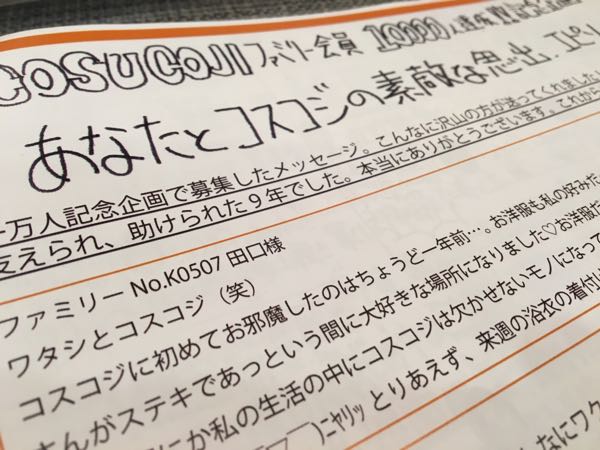 COSUCOJI ファミリー会員 10000人達成 記念
あなたとコスコジの素敵な思出.エピ
一万人記念企画で募集したメッセージ。こんなに沢山の方が送ってくれました
支えられ、助けられた９年でした。本当にありがとうございます。これから
ファミリー No.K0507 田口様
ワタシとコスコジ（笑）
コスコジに初めてお邪魔したのはちょうど一年前…。お洋服も私の好みだ
さんがステキであっという間に大好きな場所になりました♡お洋服だ
にか私の生活の中にコスコジは欠かせないモノになって
)ﾆﾔﾘｯ とりあえず、来週の浴衣の着付け
んなにワク